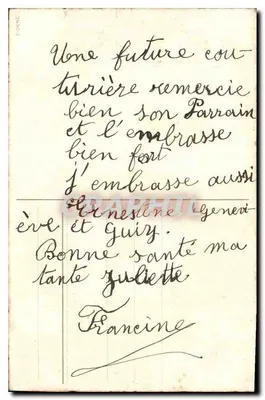 Une future cou-
turière remercie
bien son Parrain
et l'embrasse
bien fort
j'embrasse aussi
Ernestine Genevi
ève et Guiy.
Bonne santé ma
tante Juliette
Francine